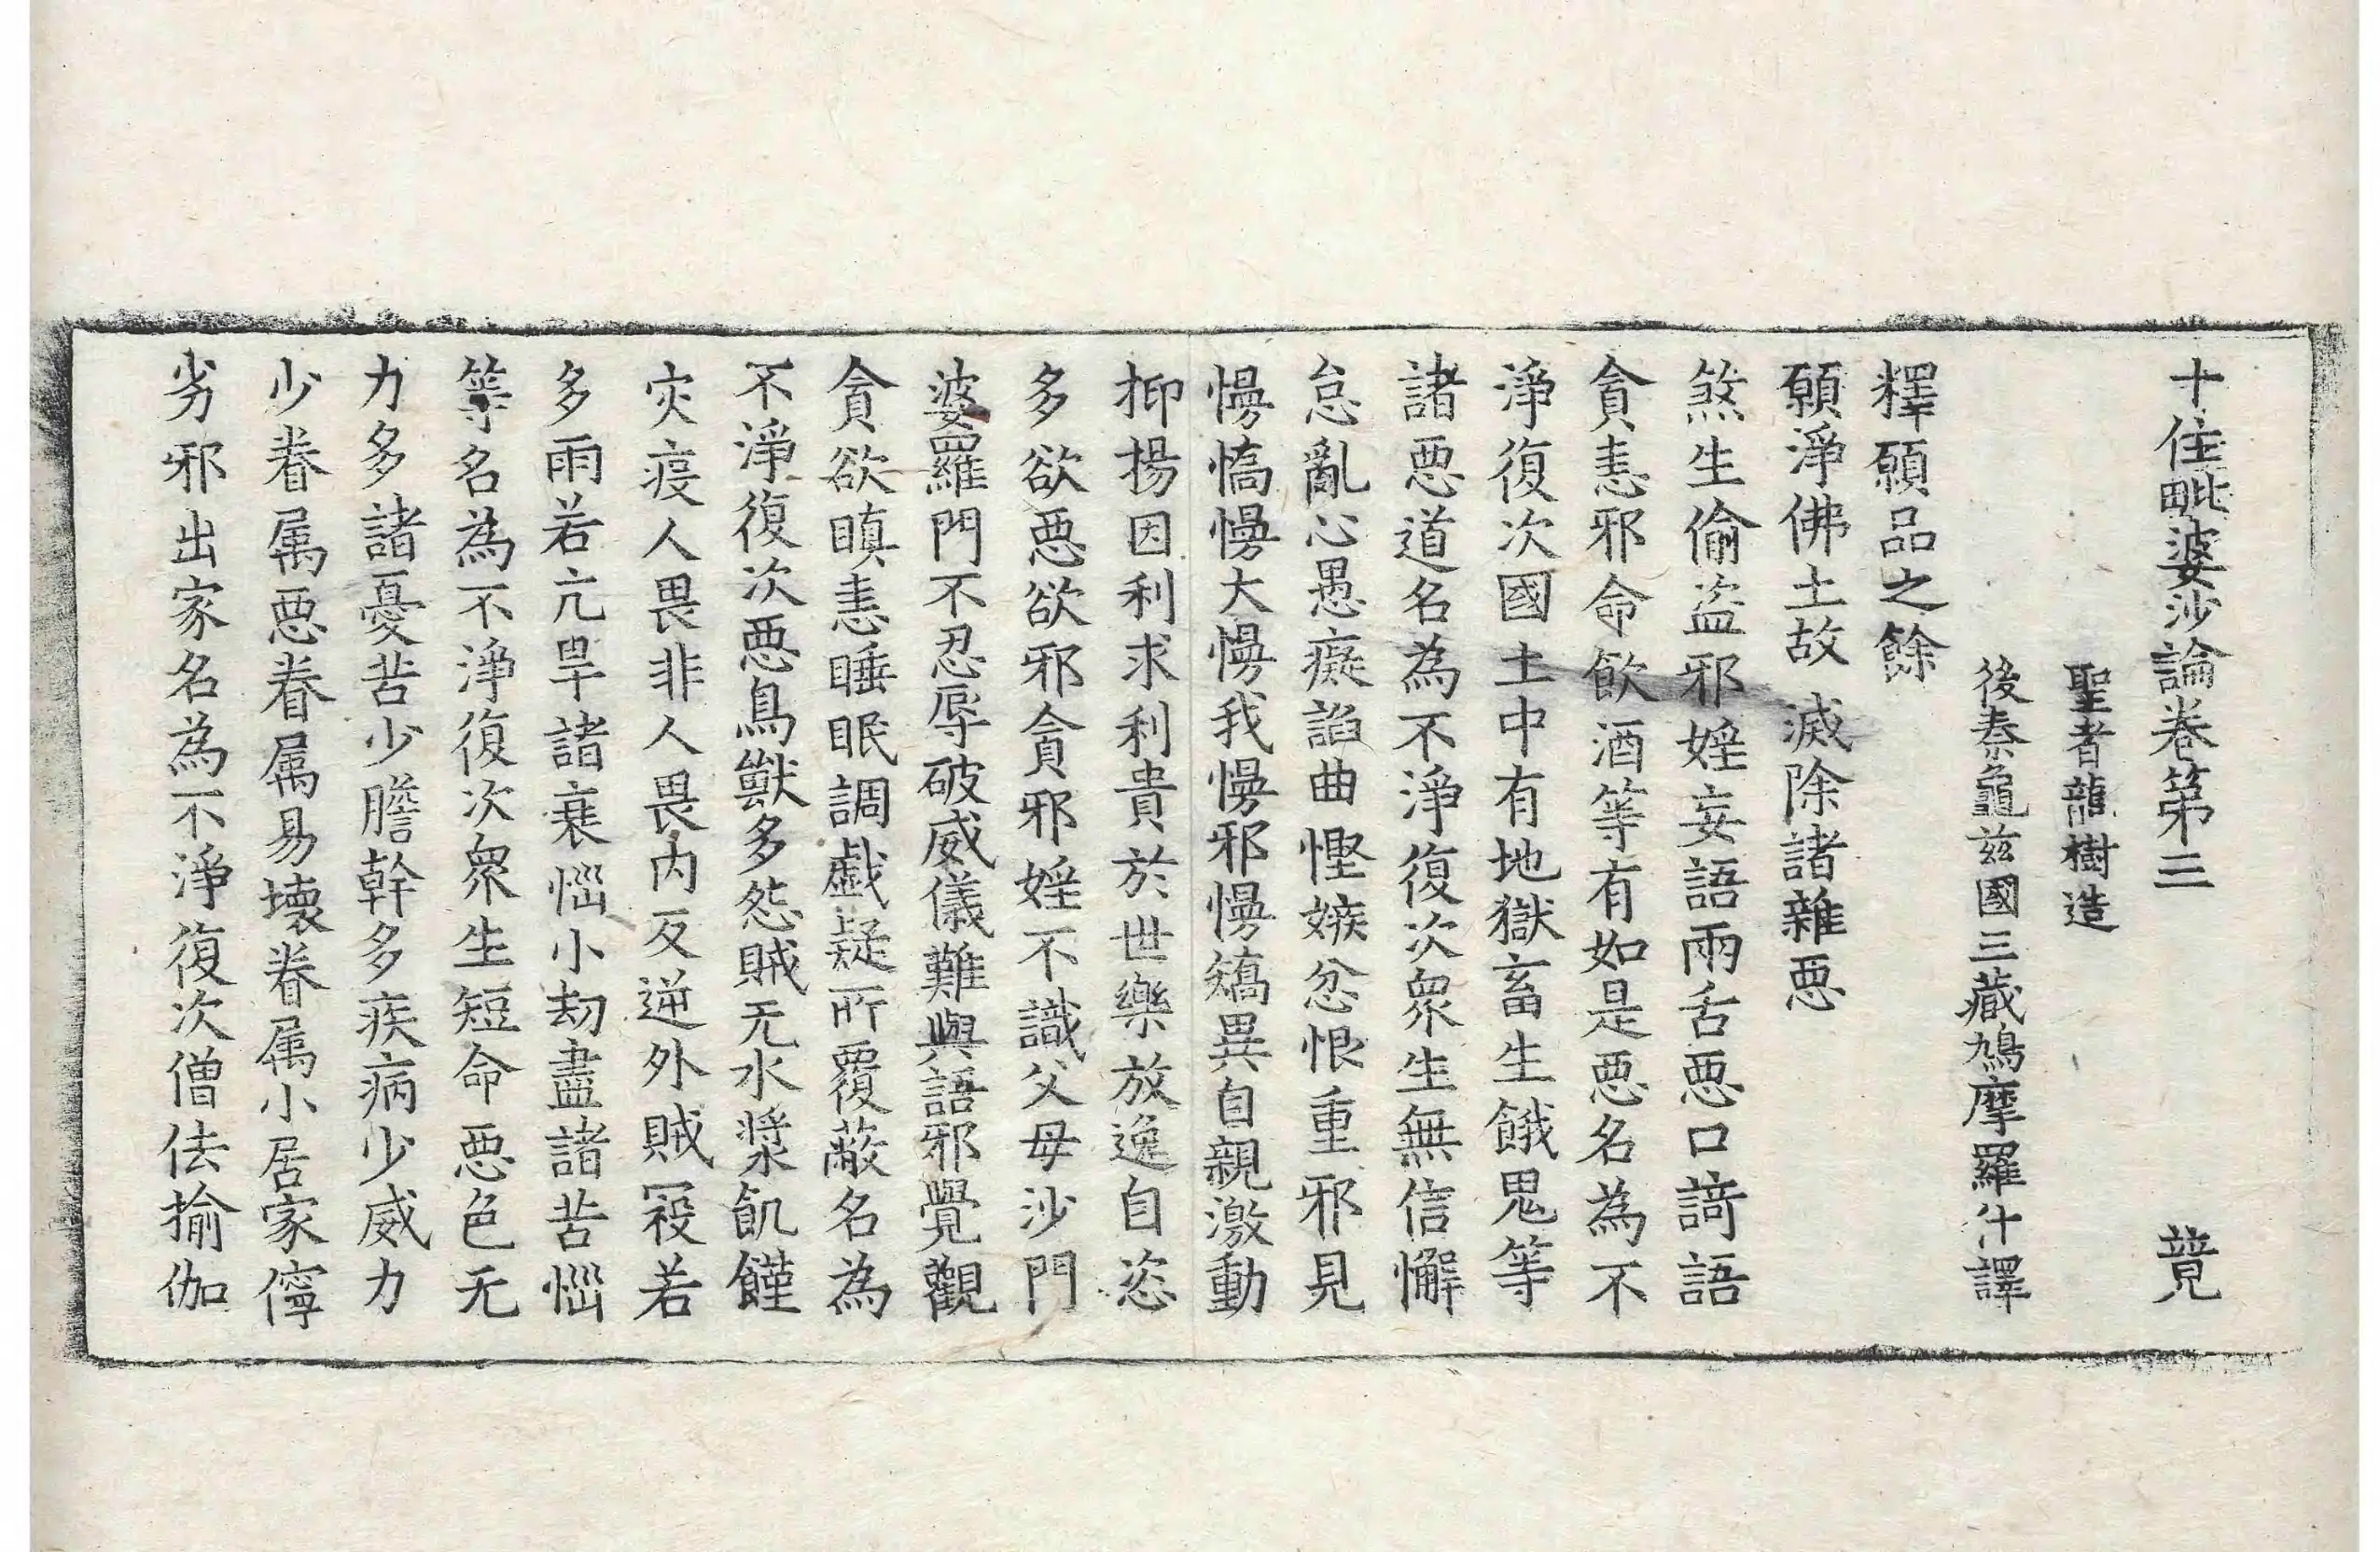 十住毗婆沙論卷第三　竟
聖者龍樹造
後秦龜茲國三藏鳩摩羅什譯
釋願品之餘
願淨佛土故滅除諸雜惡
煞生偷盜邪婬妄語兩舌惡口䛴語
貪恚邪命飮酒等有如是惡名為不
淨復次國土中有地獄畜生餓鬼等
諸惡道名為不淨復次衆生無信懈
怠亂心愚癡諂曲慳嫉忿恨重邪見
慢憍慢大慢我慢邪慢矯異自親激動
抑揚因利求利貴於世樂放逸自恣
多欲惡欲邪貪邪婬不識父母沙門
婆羅門不忍辱破威儀難與語邪覺觀
貪欲瞋恚睡眠調戲疑所覆蔽名為
不淨復次惡鳥獸多怨賊无水漿飢饉
灾疫人畏非人畏內反逆外賊寇若
多雨若亢旱諸衰惱小劫盡諸苦惱
等名為不淨復次衆生短命惡色无
力多諸憂苦少膽幹多疾病少威力
少眷属惡眷属易壞眷属小居家儜
劣邪出家名為不淨復次僧佉揄伽